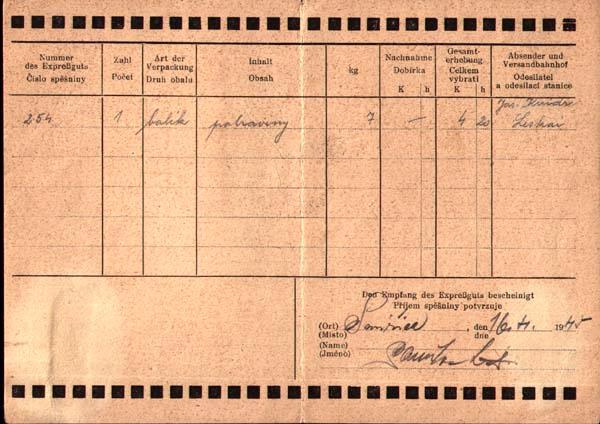 Nummer des Expreßguts
Číslo spěšniny
Zahl
Počet
Art der Verpackung
Druh obalu
Inhalt
Obsah
kg
Nachnahme
Dobírka
K h
Gesamterhebung
Celkem vybrati
K h
Absender und Versandbahnhof
Odesílatel a odesílací stanice
254 1 balík potraviny 7 — 4 20 Jos.
Den Empfang des Expreßguts bescheinigt
Příjem spěšniny potvrzuje
(Ort)
(Místo)
, den
dne
16. 1945
(Name)
(Jméno)